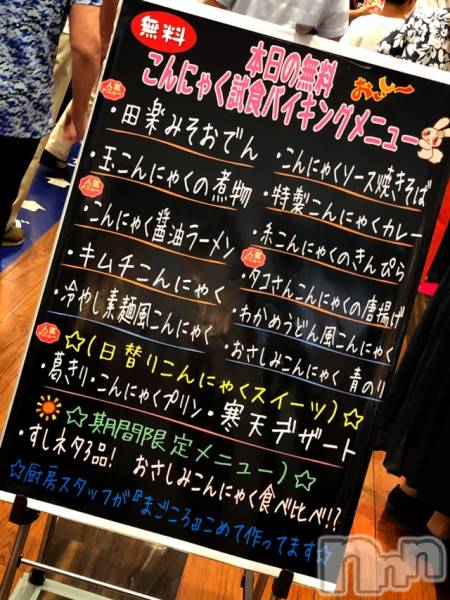 無料
本日の無料
おいし〜
こんにゃく試食バイキングメニュー
・田楽みそおでん
・玉こんにゃくの煮物
・こんにゃく醤油ラーメン
・キムチこんにゃく
・冷やし素麺風こんにゃく
・こんにゃくソース焼きそば
・特製こんにゃくカレー
・糸こんにゃくのきんぴら
・タコさんこんにゃくの唐揚げ
・わかめうどん風こんにゃく
・おさしみこんにゃく 青のり
☆(日替りこんにゃくスイーツ)☆
・葛きり・こんにゃくプリン・寒天デザート
☆(期間限定メニュー)☆
・すしネタ3品! おさしみこんにゃく食べ比べ!?
☆厨房スタッフが『まごころ』こめて作ってます☆
nnn